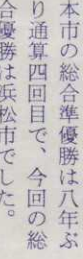 本市の総合準優勝は八年ぶ
り通算四回目で、今回の総
合優勝は浜松市でした。